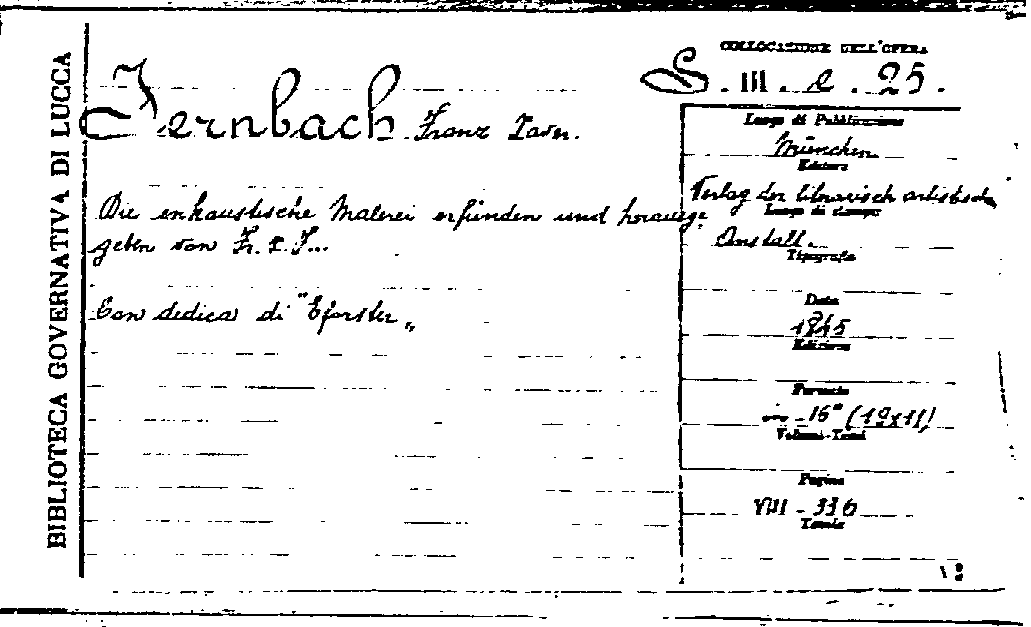 BIBLIOTECA GOVERNATIVA DI LUCCA
COLLOCAZIONE DELL'OPERA
S. III. e. 25.
Fernbach Franz Xaver.
Die enkaustische Malerei erfunden und herausge
geben von Fr. X. F...
Con dedica di "Eforster„
Luogo di Pubblicazione
München
Editore
Verlag der literarisch artistisch
Luogo di stampa
Anstalt.
Tipografo
Data
1845
Edizione
Formato
in-16° (19x11)
Volumi-Tomi
Pagine
VIII-336
Tavole